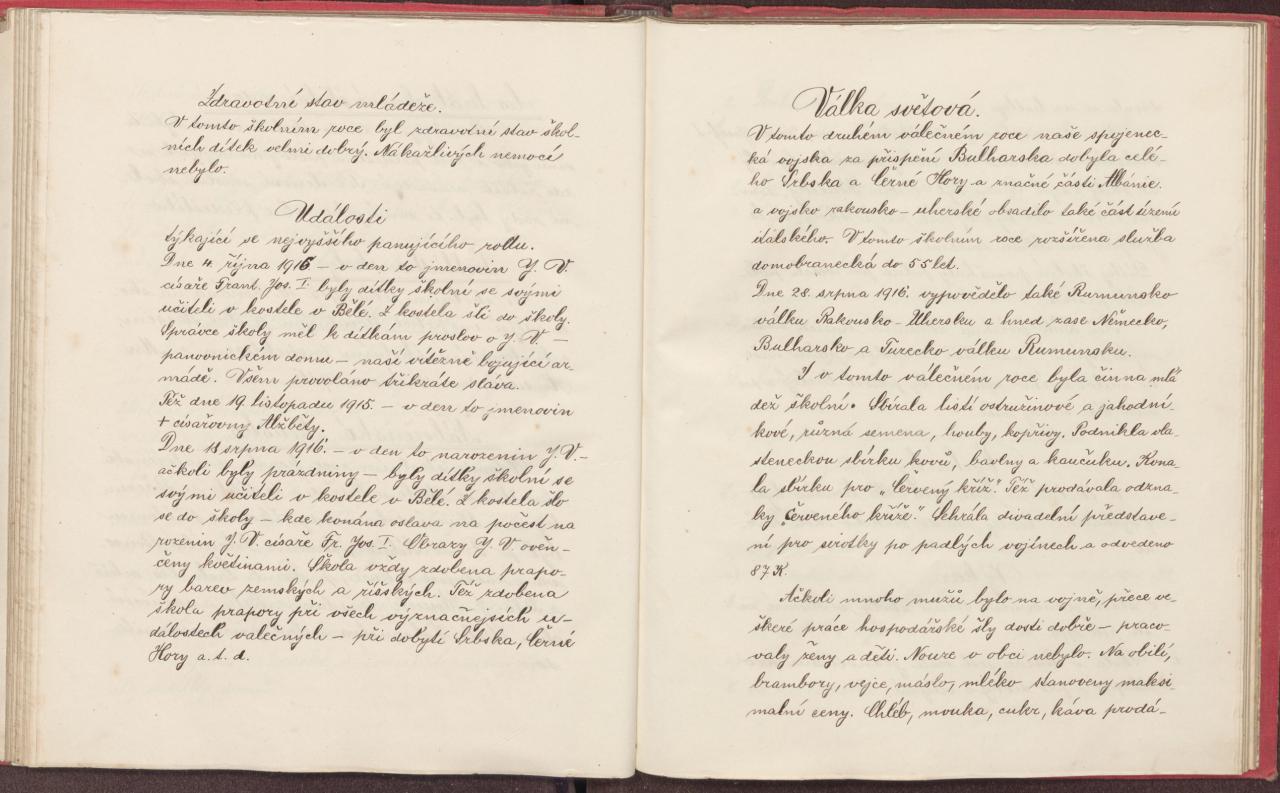 Zdravotní stav mládeže.
V tomto školním roce byl zdravotní stav škol-
ních dítek velmi dobrý. Nákažlivých nemocí
nebylo.
Události
týkající se nejvyššího panujícího rodu.
Dne 4. října 1916 – v den to jmenovin J. V.
císaře Frant. Jos. I. byly dítky školní se svými
učiteli v kostele v Bělé. Z kostela šli do školy.
Správce školy měl k dítkám proslov o J. V. –
panovnickém domu – naší vítězně bojující ar-
mádě. Všem provoláno třikráte sláva.
Též dne 19. listopadu 1915. – v den to jmenovin
+ císařovny Alžběty.
Dne 18 srpna 1916. – v den to narozenin J. V. –
ačkoli byly prázdniny – byly dítky školní se
svými učiteli v kostele v Bělé. Z kostela šlo
se do školy – kde konána oslava na počest na
rozenin J. V. císaře Fr. Jos. I. Obrazy J. V. ověn-
čeny květinami. Škola vždy zdobena prapo-
ry barev zemských a říšských. Též zdobena
škola prapory při všech význačnejsích u-
dálostech valečných – při dobytí Srbska, Černé
Hory a. t. d.
Válka světová.
V tomto druhém válečném roce naše spojenec-
ká vojska za přispění Bulharska dobyla celé-
ho Srbska a Černé Hory a značné části Albánie.
a vojsko rakousko – uherské obsadilo také část území
italského. V tomto školním roce rozšířena služba
domobranecká do 55 let.
Dne 28. srpna 1916. vypovědělo také Rumunsko
válku Rakousko – Uhersku a hned zase Německo,
Bulharsko a Turecko válku Rumunsku.
I v tomto válečném roce byla činna mlá
dež školní. Sbírala listí ostružinové a jahodní
kové, různá semena, houby, kopřivy. Podnikla vla-
steneckou sbírku kovů, bavlny a kaučuku. Kona-
la sbírku pro „Červený kříž". Též prodávala odzna-
ky „Červeného kříže." Sehrála divadelní představe-
ní pro sirotky po padlých vojínech a odvedeno
87 K.
Ačkoli mnoho mužů bylo na vojně, přece ve-
škeré práce hospodářské šly dosti dobře – praco-
valy ženy a děti. Nouze v obci nebylo. Na obilí,
brambory, vejce, máslo, mléko stanoveny maksi-
malní ceny. Chléb, mouka, cukr, káva prodá-